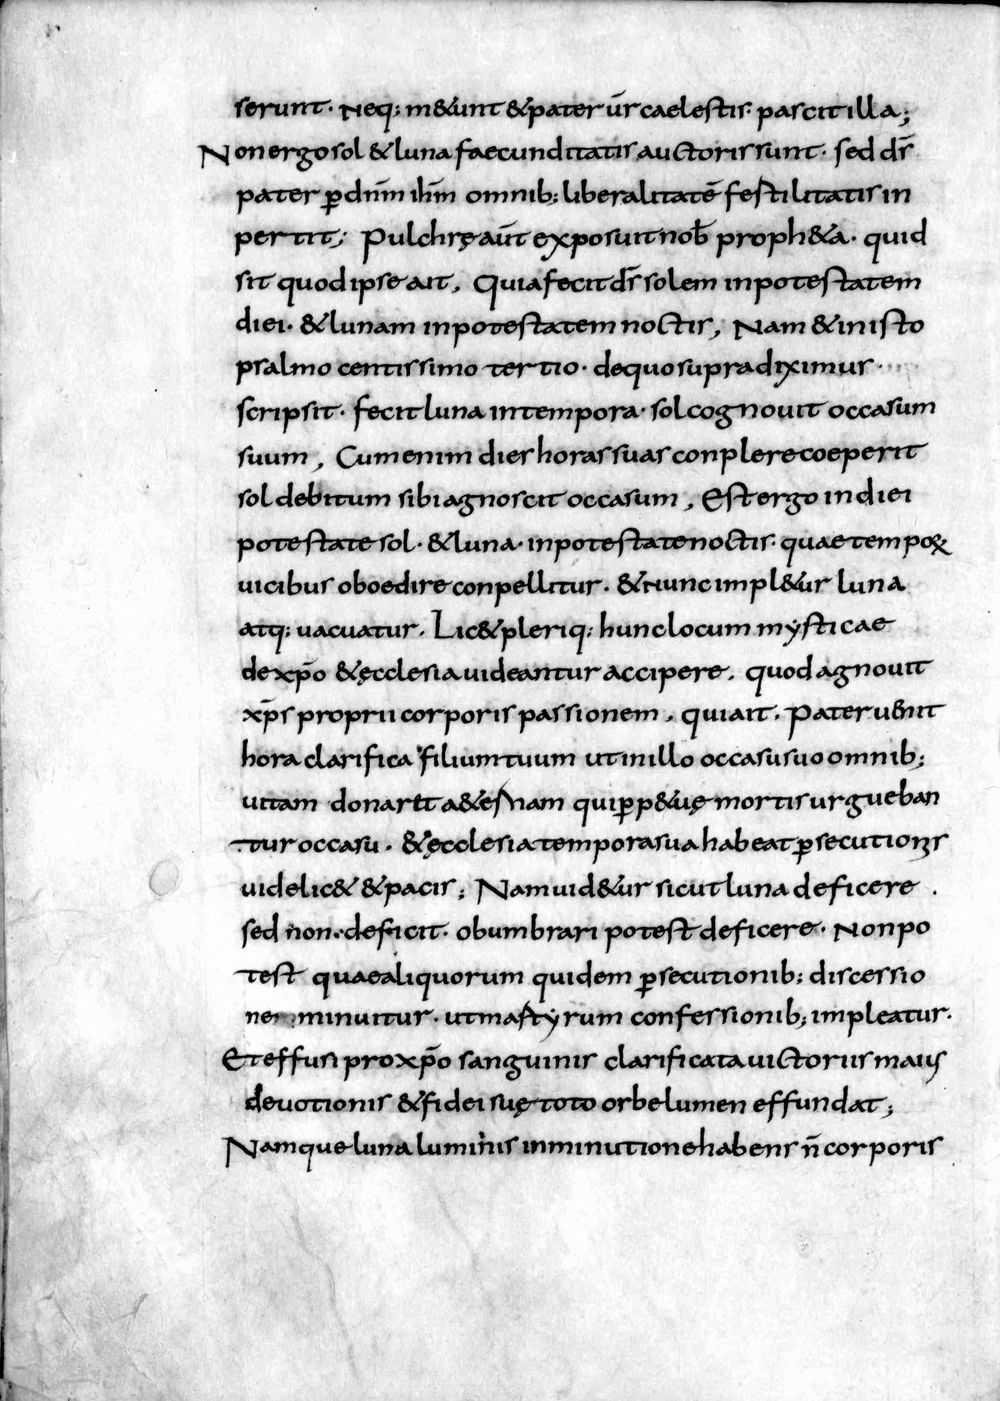 serunt· Neq; m&unt & pater ur̄ caelestis· pascit illa;
Non ergo sol & luna faecunditatis auctoris sunt· sed ds̄
pater p̲ dnm̄ ihm̄ omnib; liberalitatē festilitatis in
pertit; Pulchrę aūt exposuit nob̄ proph&a· quid
sit quod ipse ait, Quia fecit ds̄ solem in potestatem
diei· & lunam in potestatem noctis, Nam & in isto
psalmo centissimo tertio· de quo supra diximus·
scripsit· fecit luna in tempora· sol cognouit occasum
suum, Cum enim dies horas suas conplere coeperit
sol debitum sibi agnoscit occasum, Est ergo in diei
potestate sol· & luna· in potestate noctis· quae tempoꝝ
uicibus oboedire conpellitur· & nunc impl&ur luna
atq; uacuatur. Lic& pleriq; hunc locum mysticae
de xp̄o & ęcclesia uideantur accipere. quod agnouit
xp̄s proprii corporis passionem, quia it. Pater uenit
hora clarifica filium tuum ut in illo occasu suo omnib;
uitam donar&t a&ernam qui p̲p&uę mortis urgueban
tur occasu. & ęcclesia tempora sua habeat p̲secutionis
uidelic& & pacis; Nam uid&ur sicut luna deficere.
sed non· deficit· obumbrari potest deficere· Non po
test quae aliquorum quidem p̲secutionib; discessio
ne minuitur· ut martyrum confessionib; impleatur·
Et effusi pro xp̄o sanguinis clarificata uictoriis maius
deuotionis & fidei suę toto orbe lumen effundat;
Namque luna luminis inminutione habens n̄ corporis